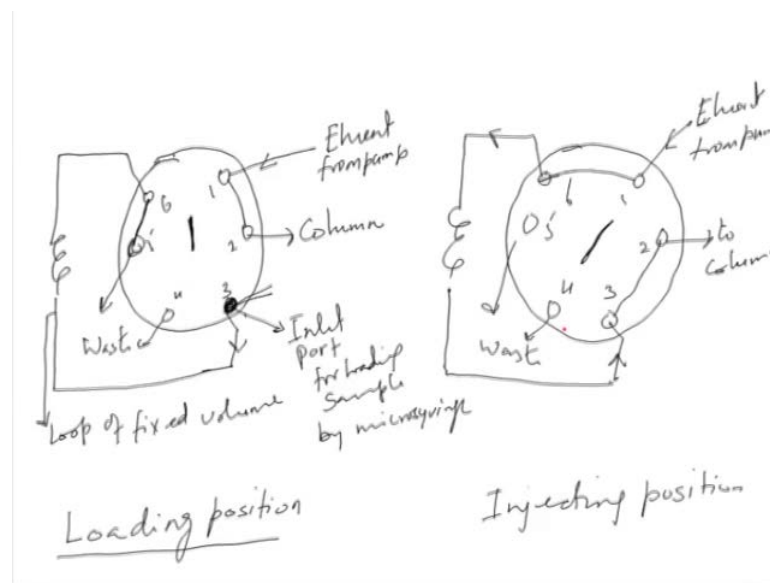 Eluent
from pump
1
6
5
2
Column
4
3
Waste
Inlet
Port
for loading
Sample
by microsyringe
Loop of fixed volume
Loading position
Eluent
from pum
6
1
5
2
to
Colum
4
3
Waste
Injecting position